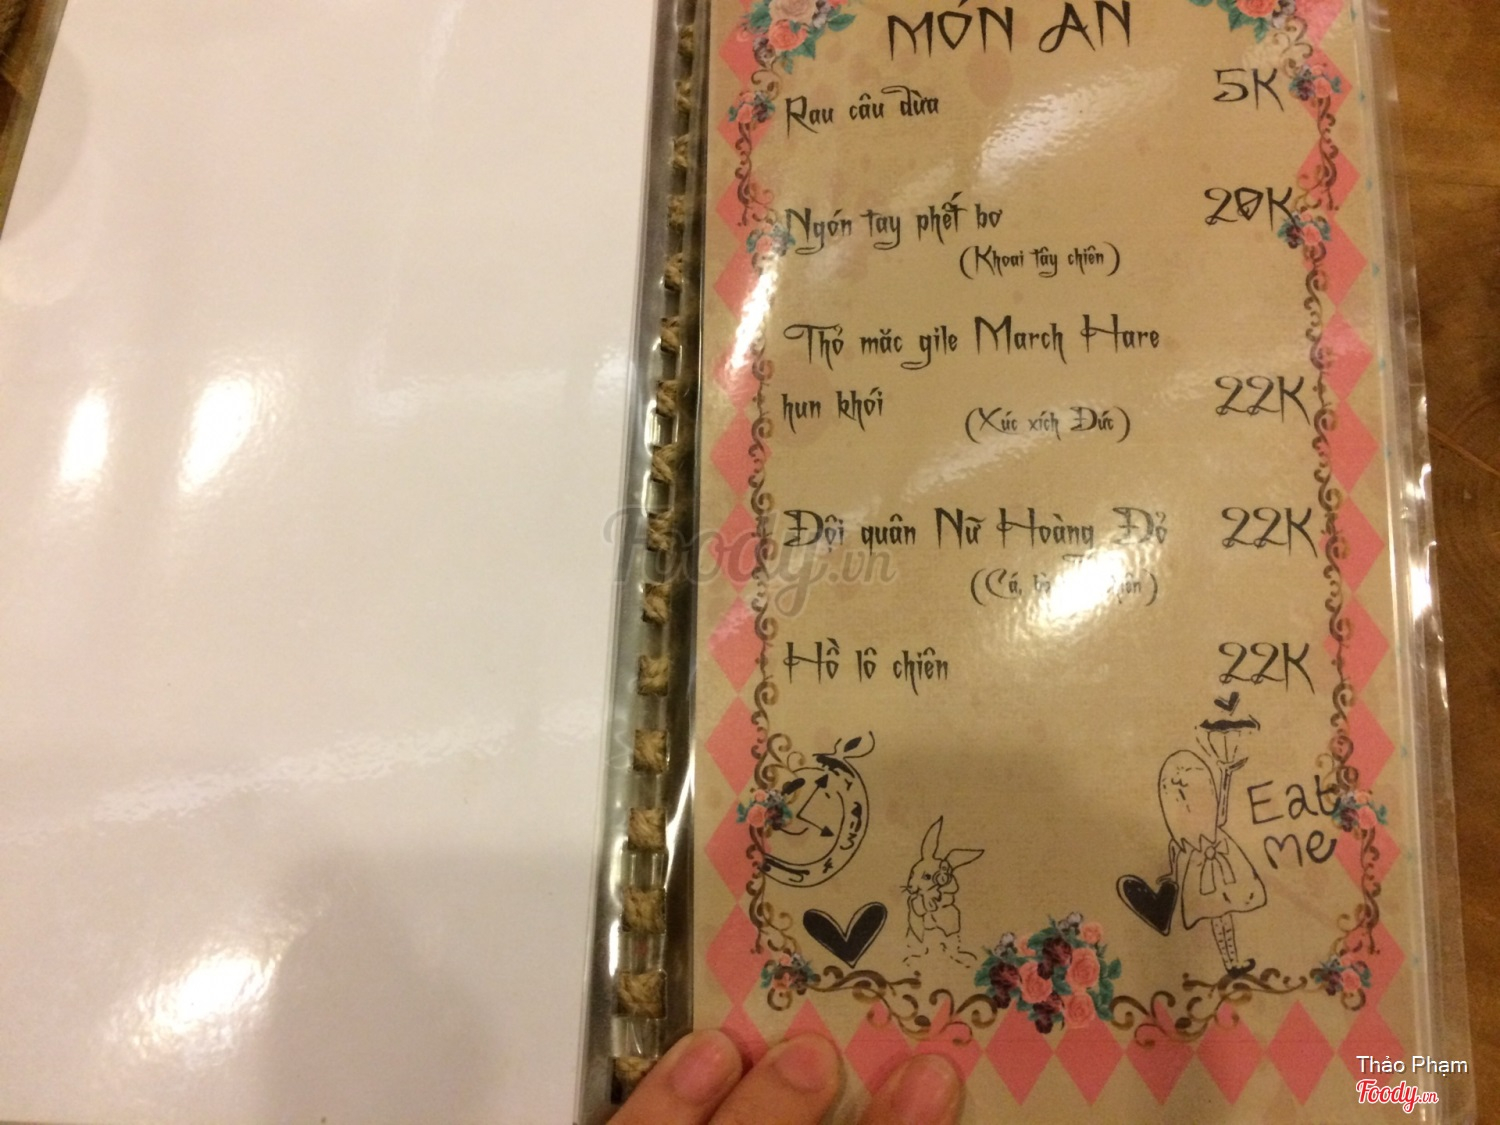 MÓN ĂN
Rau câu dừa 5K
Ngón tay phết bơ 20K
(Khoai tây chiên)
Thỏ mặc gile March Hare
hun khói 22K
(Xúc xích Đức)
Đội quân Nữ Hoàng Đỏ 22K
(Cá, bò
Hồ lô chiên 22K
Eat
me
Foody.vn
Thảo Phạm
Foody.vn